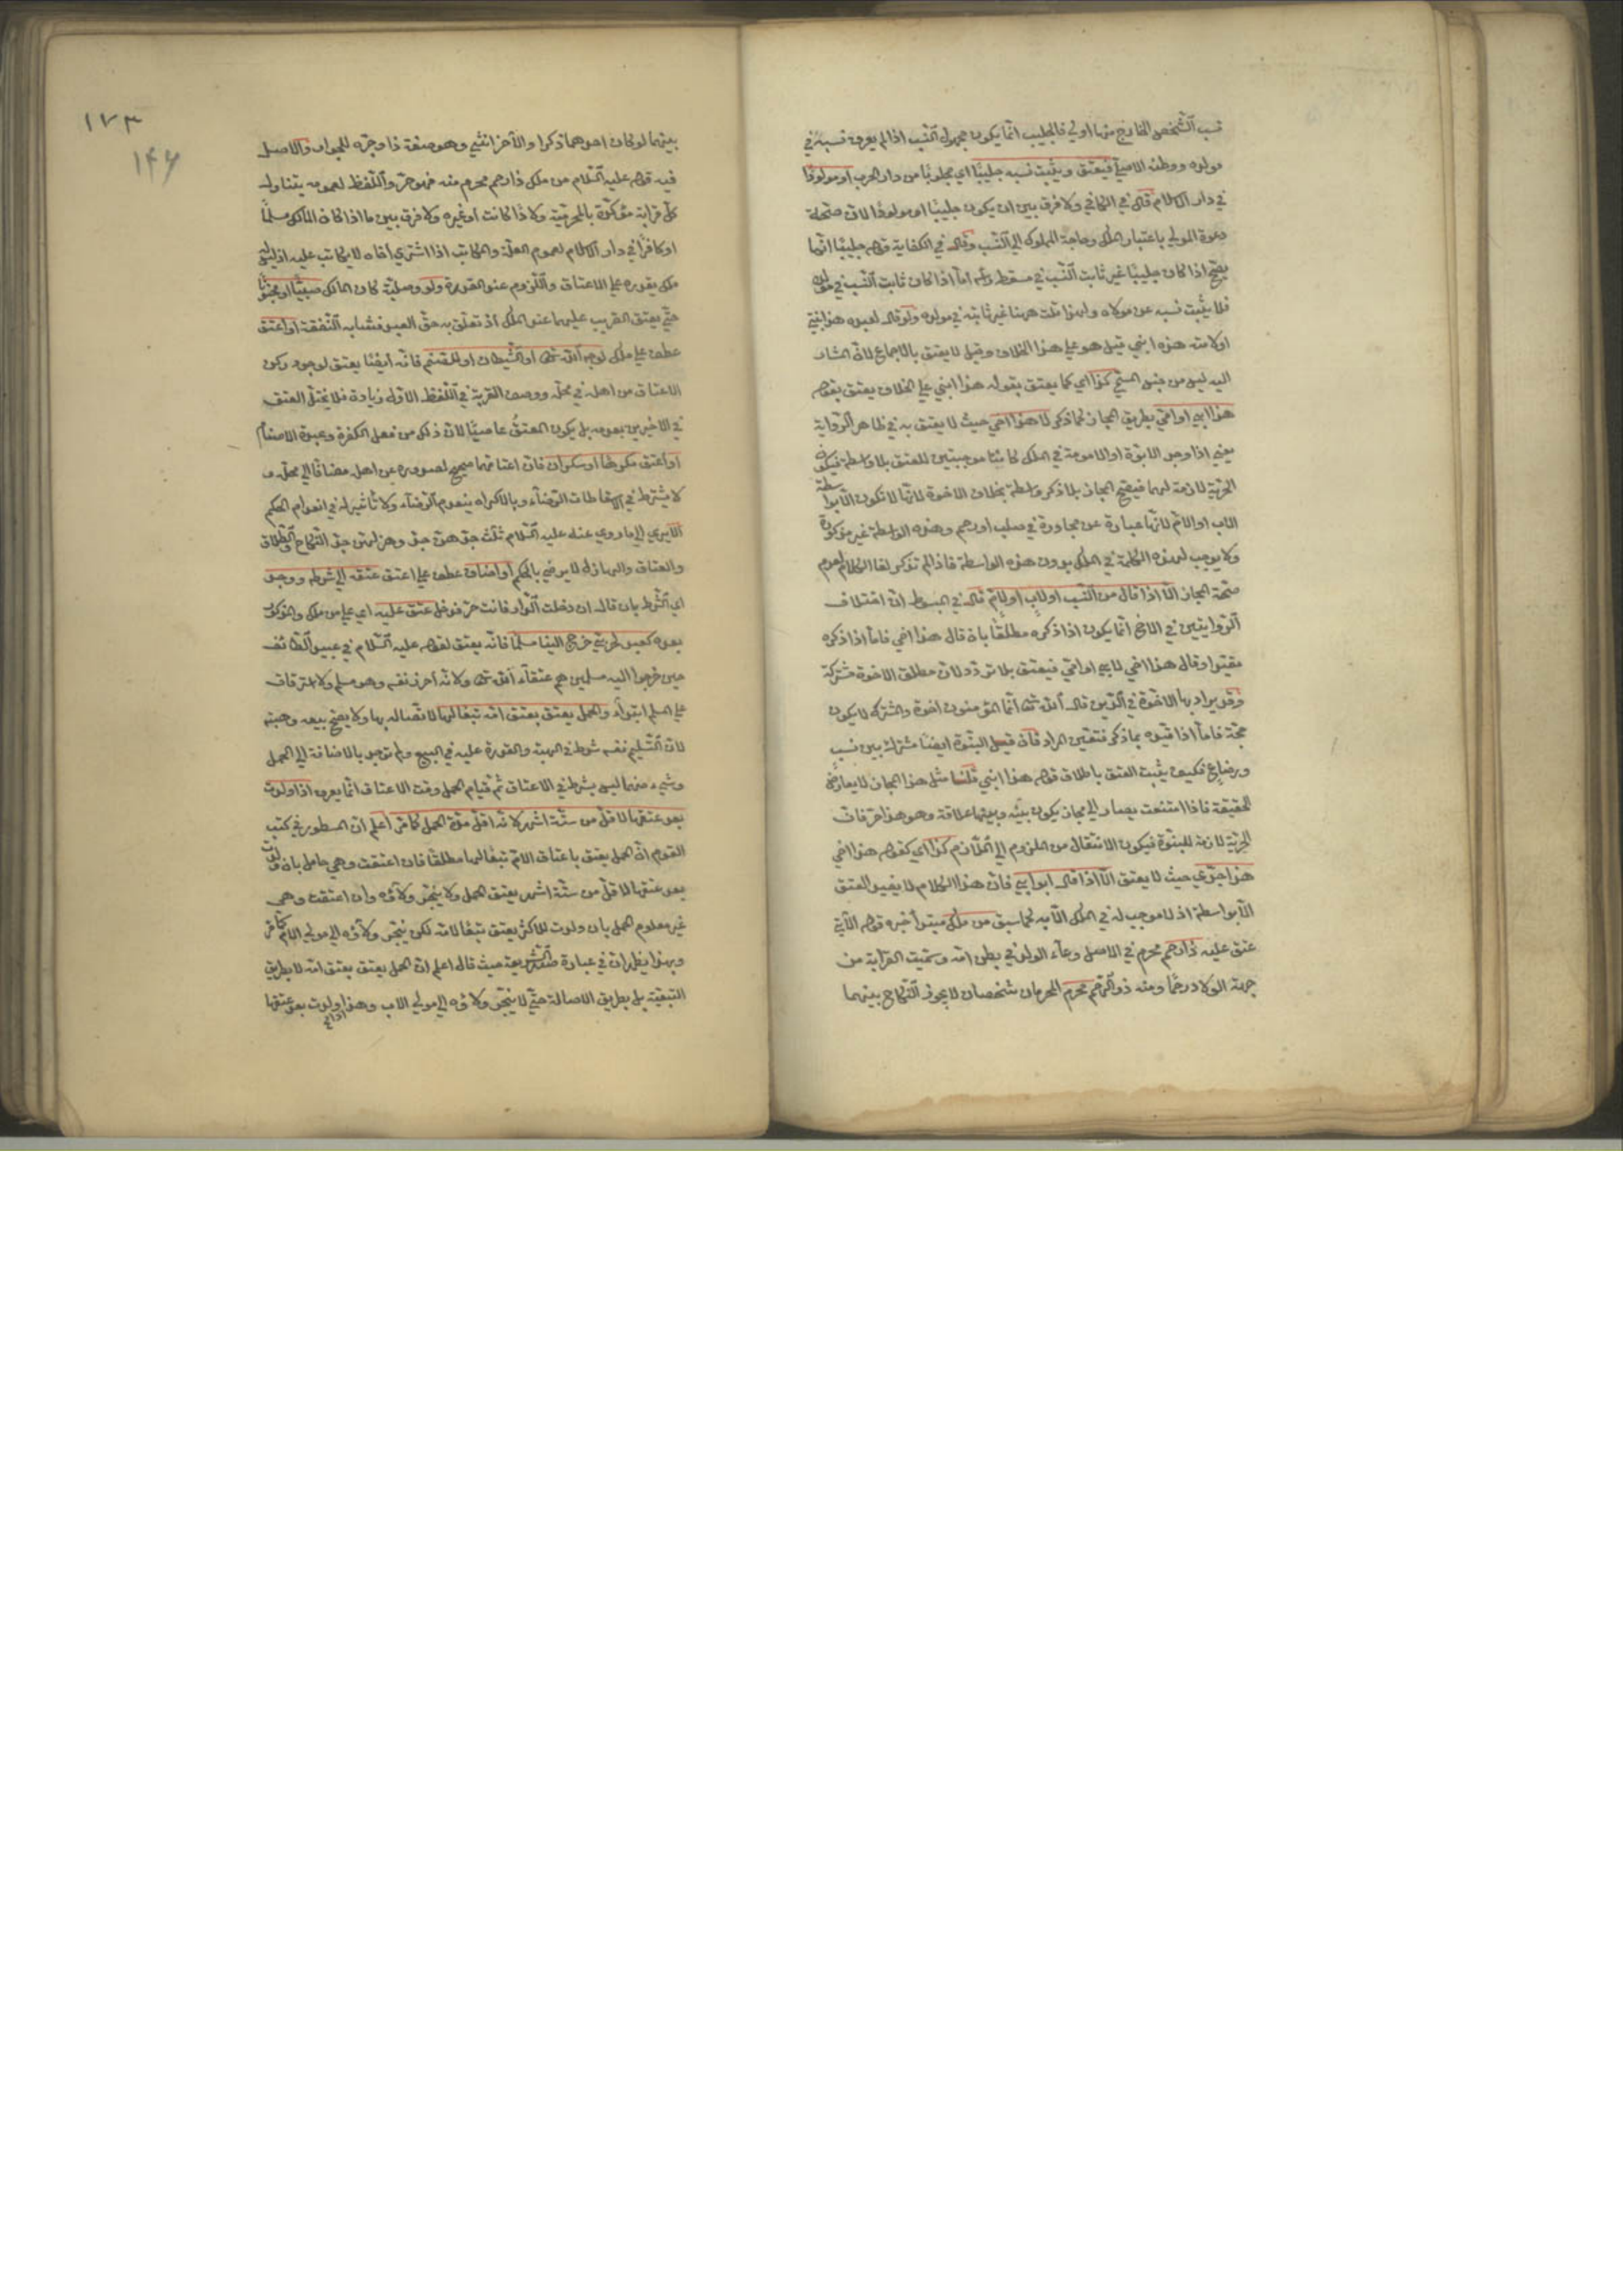 نسب الشخص الخارج منها اولي فالجليب انما يكون مجهول النسب اذا لم يعرف نسبه في
مولده ووطنه الاصلي فيعتق ويثبت نسبه جليبًا اي مجلوبًا من دار الحرب او مولودًا
في دار الاسلام قال في الكافي ولا فرق بين ان يكون جليبًا او مولودًا لان صحة
دعوة المولي باعتبار الملك وحاجة المملوك الي النسب وقال في الكفاية قوله جليبًا انما
يصح اذا كان جليبًا غير ثابت النسب في مسقط رأسه اما اذا كان ثابت النسب في مولده
فلا يثبت نسبه عن مولاه ولو قال لعبده هذا ابنتي
او لامته هذه ابني قيل هو علي هذا الخلاف وقيل لا يعتق بالاجماع لان المشار
اليه ليس من جنس المسمي كذا اي كما يعتق بقوله هذا ابني علي الخلاف يعتق بقوله
هذا ابي او امي بطريق المجاز لما ذكر لا هذا اخي حيث لا يعتق به في ظاهر الرواية
يعني اذا وجد الابوة او الامومة في الملك كانتا موجبتين للعتق بلا واسطة فيكون
الحرية لازمة لهما فيصح المجاز بلا ذكر واسطة بخلاف الاخوة لانها لا تكون الا بواسطة
الاب او الام لانها عبارة عن مجاورة في صلب او رحم وهذه الواسطة غير مذكورة
ولا يوجب لهذه الكلمة في الملك بدون هذه الواسطة فاذا لم تذكر لغا الكلام لعدم
صحة المجاز الا اذا قال من النسب او لاب او لام قال في المبسوط ان اختلاف
الروايتين في الاخ انما يكون اذا ذكره مطلقًا بان قال هذا اخي فاما اذا ذكره
مقيدا وقال هذا اخي لابي او امي فيعتق بلا تردد لان مطلق الاخوة مشتركة
وقد يراد بها الاخوة في الدين قال الله تعالى انما المؤمنون اخوة والمشترك لا يكون
حجة فاما اذا قيده بما ذكر فتعين المراد فان قيل البنوة ايضًا مشترك بين نسب
ورضاع فكيف يثبت العتق باطلاق قوله هذا ابني قلنا مثل هذا المجاز لا يعارض
الحقيقة فاذا امتنعت يصار الي مجاز يكون بينه وبينها علاقة وهو هذا حر فان
الحرية لازمة للبنوة فيكون الانتقال من الملزوم الي اللازم كذا اي كقوله هذا اخي
هذا جدي حيث لا يعتق الا اذا قال ابو ابي فان هذا الكلام لا يفيد العتق
الا بواسطة اذ لا موجب له في الملك الا به كما سبق من ملك مبتدأ خبره قوله الآتي
عتق عليه ذا رحم محرم في الاصل وعاء الولد في بطن امه وسميت القرابة من
جهة الولاد رحمًا ومنه ذو الرحم محرم المحرمان شخصان لا يجوز النكاح بينهما
١٧٣
١٤٦
بينهما لو كان احدهما ذكرا والآخر انثي وهو صفة ذا وجره للجوار والاصل
فيه قوله عليه السلام من ملك ذا رحم محرم منه فهو حر واللفظ لعمومه يتناول
كل قرابة مؤكدة بالمحرمية ولادًا كانت او غيره ولا فرق بين ما اذا كان المالك مسلمًا
او كافرًا في دار الاسلام لعموم العلة والمكاتب اذا اشتري اخاه لا يكاتب عليه اذ ليس له
ملك يقدره علي الاعتاق واللزوم عند القدرة ولو وصلية كان المالك صبيًا او مجنونًا
حتي يعتق القريب عليهما عند الملك اذ تعلق به حق العبد فشابه النفقة او اعتق
عطف علي ملك لوجه الله تعالى او للشيطان او للصنم فانه ايضًا يعتق لوجود ركن
الاعتاق من اهله في محله ووصف القربة في اللفظ الاول زيادة فلا يختل العتق
في الاخيرين بعدمه بل يكون المعتق عاصيًا لان ذلك من فعل الكفرة وعبدة الاصنام
او اعتق مكرهًا او سكران فان اعتاقهما صحيح لصدوره عن اهله مضافًا الي محله و
لا يشترط في الاسقاطات الرضاء وبالاكراه ينعدم الرضاء ولا تأثير له في انعدام الحكم
الا يري الي ما روي عنه عليه السلام ثلث جدهن جد وهزلهن جد النكاح والطلاق
والعتاق والهازل لا يرضي بالحكم او اضاف عطف علي اعتق عتقه الي شرط ووجد
اي الشرط بان قال ان دخلت الدار فانت حر فدخل عتق عليه اي علي من ملك والمذكور
بعده كعبد لحربي خرج الينا مسلمًا فانه يعتق لقوله عليه السلام في عبيد الطائف
حين خرجوا اليه مسلمين هم عتقاء الله تعالى ولانه احرز نفسه وهو مسلم ولا استرقاق
علي المسلم ابتداء والحمل يعتق بعتق امه تبعًا لها لاتصاله بها ولا يصح بيعه وهبته
لان التسليم نفسه شرط في الهبة والقدرة عليه في البيع ولم توجد بالاضافة الي الحمل
وشيء منهما ليس بشرط في الاعتاق ثم قيام الحمل وقت الاعتاق انما يعرف اذا ولدت
بعد عتقها لاقل من ستة اشهر لانه اقل مدة الحمل كما مر اعلم ان المسطور في كتب
القوم ان الحمل يعتق باعتاق الام تبعًا لها مطلقًا فان اعتقت وهي حامل بان ولدت
بعد عتقها لاقل من ستة اشهر يعتق الحمل ولا ينجر ولاؤه وان اعتقت وهي
غير معلوم الحمل بان ولدت للاكثر يعتق تبعًا لامه لكن ينجر ولاؤه الي مولي الاب كما مر
وبهذا يظهر ان في عبارة صدر الشريعة حيث قال اعلم ان الحمل يعتق بعتق امه لا بطريق
التبعية بل بطريق الاصالة حتي لا ينجر ولاؤه الي مولي الاب وهذا اذا ولدت بعد عتقها